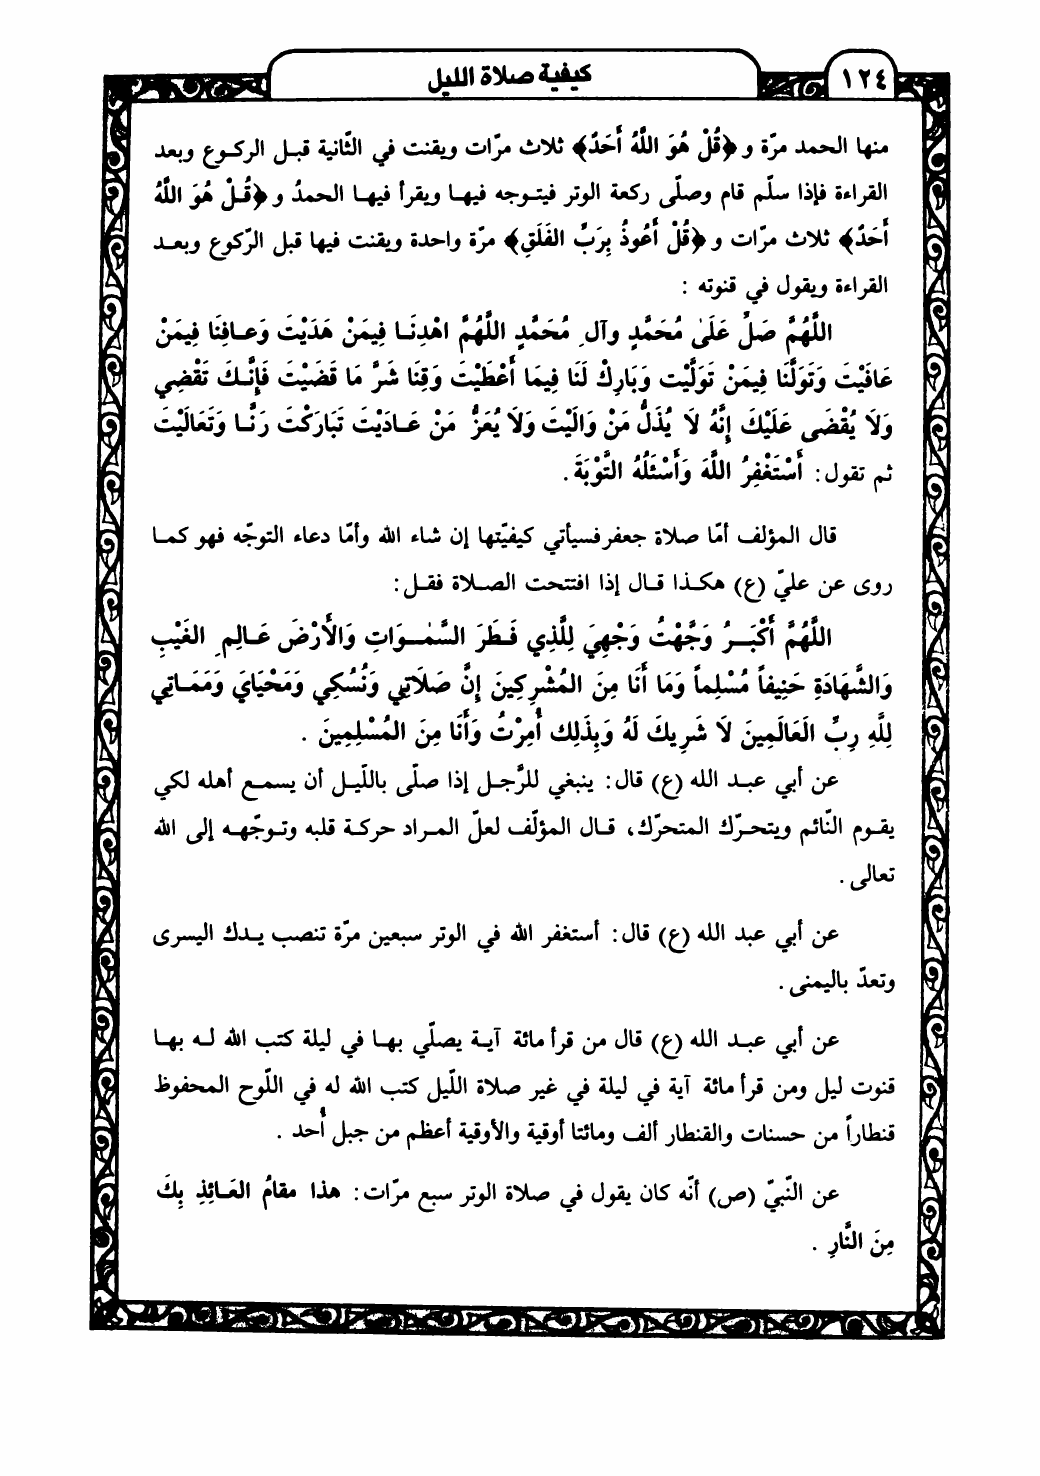 ١٢٤
كيفية صلاة الليل
منها الحمد مرّة و ﴿قُلْ هُوَ اللَّهُ أَحَدٌ﴾ ثلاث مرّات ويقنت في الثّانية قبل الركوع وبعد
القراءة فإذا سلّم قام وصلّى ركعة الوتر فيتوجه فيها ويقرأ فيها الحمدُ و ﴿قُلْ هُوَ اللَّهُ
أَحَدٌ﴾ ثلاث مرّات و ﴿قُلْ أَعُوذُ بِرَبِّ الفَلَقِ﴾ مرّة واحدة ويقنت فيها قبل الرّكوع وبعد
القراءة ويقول في قنوته :
اللَّهُمَّ صَلِّ عَلَىٰ مُحَمَّدٍ وآلِ مُحَمَّدٍ اللَّهُمَّ اهْدِنَا فِيمَنْ هَدَيْتَ وَعَافِنَا فِيمَنْ
عَافَيْتَ وَتَوَلَّنَا فِيمَنْ تَوَلَّيْتَ وَبَارِكْ لَنَا فِيمَا أَعْطَيْتَ وَقِنَا شَرَّ مَا قَضَيْتَ فَإِنَّكَ تَقْضِي
وَلاَ يُقْضَى عَلَيْكَ إِنَّهُ لاَ يُذَلُّ مَنْ وَالَيْتَ وَلاَ يُعَزُّ مَنْ عَادَيْتَ تَبَارَكْتَ رَبَّنا وَتَعَالَيْتَ
ثم تقول: أَسْتَغْفِرُ اللَّهَ وَأَسْئَلُهُ التَّوْبَةَ.
قال المؤلف أمّا صلاة جعفر فسيأتي كيفيّتها إن شاء الله وأمّا دعاء التوجّه فهو كما
روى عن عليّ (ع) هكذا قال إذا افتتحت الصلاة فقل:
اللَّهُمَّ أَكْبَرُ وَجَّهْتُ وَجْهِيَ لِلَّذِي فَطَرَ السَّمٰوَاتِ وَالأَرْضَ عَالِمِ الغَيْبِ
وَالشَّهَادَةِ حَنِيفاً مُسْلِماً وَمَا أَنَا مِنَ المُشْرِكِينَ إِنَّ صَلَاتِي وَنُسُكِي وَمَحْيَايَ وَمَمَاتِي
لِلَّهِ رِبِّ العَالَمِينَ لاَ شَرِيكَ لَهُ وَبِذَلِكَ أُمِرْتُ وَأَنَا مِنَ المُسْلِمِينَ .
عن أبي عبد الله (ع) قال: ينبغي للرَّجل إذا صلّى باللّيل أن يسمع أهله لكي
يقوم النّائم ويتحرّك المتحرّك، قال المؤلّف لعلّ المراد حركة قلبه وتوجّهه إلى الله
تعالى.
عن أبي عبد الله (ع) قال: أستغفر الله في الوتر سبعين مرّة تنصب يدك اليسرى
وتعدّ باليمنى.
عن أبي عبد الله (ع) قال من قرأ مائة آية يصلّي بها في ليلة كتب الله له بها
قنوت ليل ومن قرأ مائة آية في ليلة في غير صلاة اللّيل كتب الله له في اللّوح المحفوظ
قنطاراً من حسنات والقنطار ألف ومائتا أوقية والأوقية أعظم من جبل أُحد .
عن النّبيّ (ص) أنّه كان يقول في صلاة الوتر سبع مرّات: هذا مقامُ العَائِذِ بِكَ
مِنَ النَّارِ .